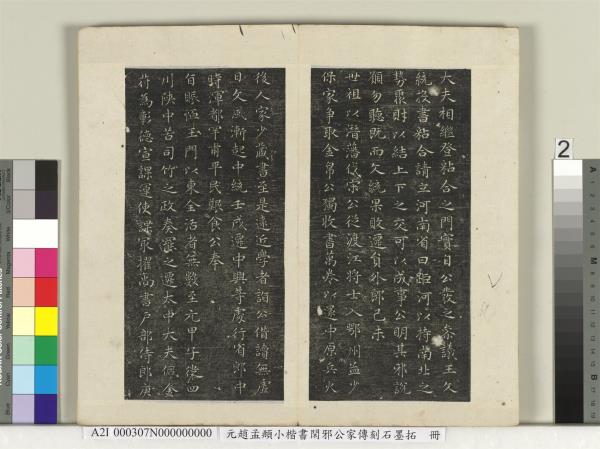 大夫相繼登粘合之門實自公發之奈議王久
統沒書粘合請立河南省曰跨河以持南北之
勢聚財以結上下之交可以成事公明其邪說
願勿聽既而久統果敗遷員外郎己未
世祖以潛藩伐宋公從渡江將士入鄂州益少
保家爭取金帛公獨收書萬卷以還中原兵火
後人家少藏書至是遠近學者詣公借讀無虛
日久風漸起中統壬戌遷中興等處行省郎中
時渾都罕甫平民艱食公奉
旨賑恤玉門以東全活者無數至元甲子僉四
川陝中書司竹之政奏罷之遷太中大夫佩金
符為彰德宣課運使諜家擢為尚書戶部侍郎庚
2
A2I 000307N000000000 元趙孟頫小楷書閑邪公家傳刻石墨拓 冊